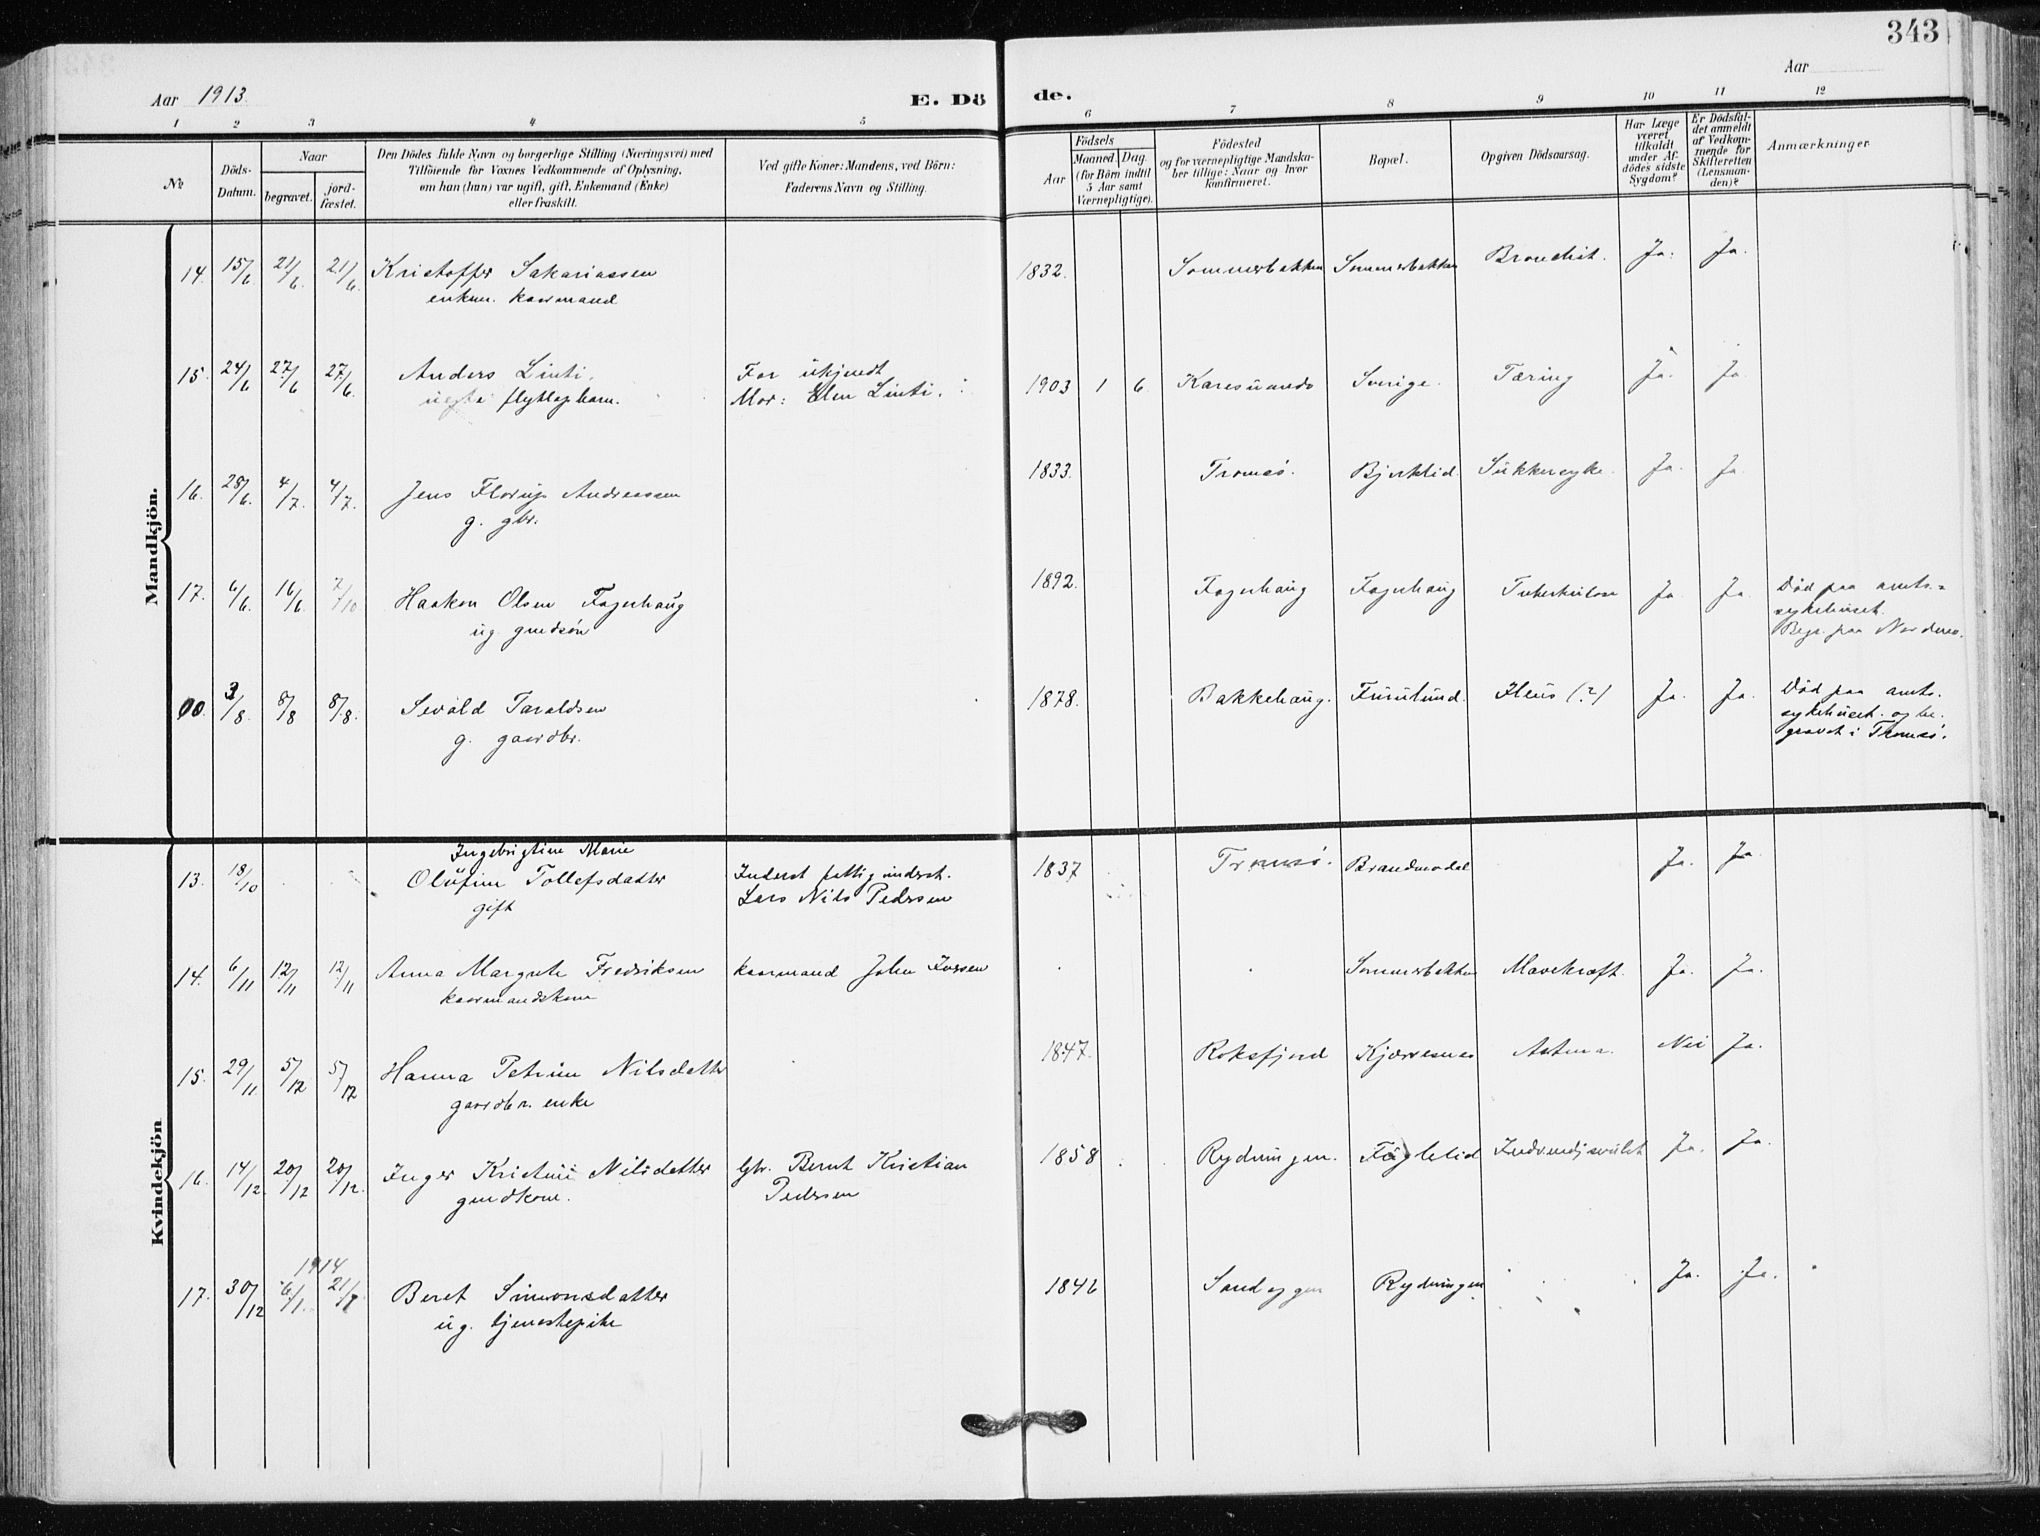 343
Aar 1913
E. Dö
de.
Aar
1 2 3 4 5 6 7 8 9 10 11 12
No
Döds-
Datum.
Naar
begravet.
jord-
fæstet.
Den Dödes fulde Navn og borgerlige Stilling (Næringsvei) med
Tilföiende for Voxnes Vedkommende af Oplysning,
om han (hun) var ugift, gift, Enkemand (Enke)
eller fraskilt.
Ved gifte Koner: Mandens, ved Börn:
Faderens Navn og Stilling.
Födsels
Aar
Maaned. Dag.
(for Börn indtil
5 Aar samt
Værnepligtige).
Födested
og for værnepligtige Mandska-
ber tillige: Naar og hvor
konfirmeret.
Bopæl.
Opgiven Dödsaarsag.
Har Læge
været
tilkaldt
under Af-
dödes sidste
Sygdom?
Er Dödsfal-
det anmeldt
af Vedkom-
mende for
Skifteretten
(Lensman-
den)?
Anmærkninger
Mandkjön.
14. 15/6 21/6 21/6 Kristoffer Sakariassen 1832. Sommerbakken Sommerbakken Bronchit. Ja. Ja.
enkem. kaarmand
15. 24/6 27/6 27/6. Anders Linti. Far ukjendt 1903 1 6. Karesuando Sverige. Tæring Ja. Ja.
uegte flytlapbarn. Mor: Elen Linti.
16. 28/6. 4/7. 4/7. Jens Florup Andreassen 1833. Tromsö. Bjerklid. Sukkersyke. Ja. Ja.
g. gbr.
17. 6/6 16/6. 7/10 Haakon Olsen Fagerhaug 1892. Fagerhaug Fagerhaug Tuberkulose Ja. Ja. Död paa amts-
ug. gmdsön sykehuset.
Begr. paa Nordmo.
00. 3/8. 8/8 8/8. Sevald Taraldsen 1878. Bakkehaug. Furulund. Ileus (?) Ja. Ja. Död paa amts-
g. gaardbr. sykehuset og be-
gravet i Tromsö.
Kvindekjön
Ingebrigtine Marie
13. 18/10 Olufine Tollefsdatter Inderst fattig underst. 1837 Tromsö. Brandmodal Ja. Ja.
gift Lars Nils Pedersen
14. 6/11 12/11 12/11 Anna Margrete Fredriksen kaarmand John Iversen Sommerbakken Mavekræft. Ja. Ja.
kaarmandskone
15. 29/11 5/12 5/12 Hanna Petrine Nilsdatter 1847. Roksfjord Kjærvesnes Astma. Nei Ja.
gaardbr. enke
16. 14/12. 20/12 20/12. Inger Kristine Nilsdatter Gbr. Bernt Kristian 1858 Rydningen. Fuglelid Indvendj svulst Ja. Ja.
gmdkone. Pedersen
1914
17. 30/12 6/1. 21/7 Beret Simonsdatter 1846 Sandeggen Rydningen Ja. Ja.
ug. tjenestepike